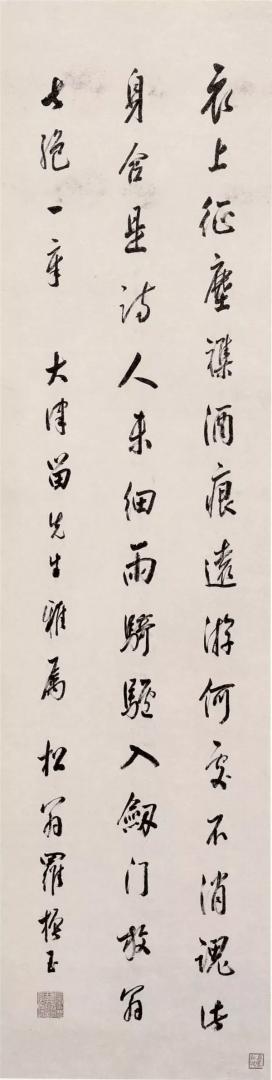 衣上征塵襍酒痕遠游何處不消魂此
身合是詩人未細雨騎驢入劍門放翁
七絕一章 大津留先生雅屬 松翁羅振玉